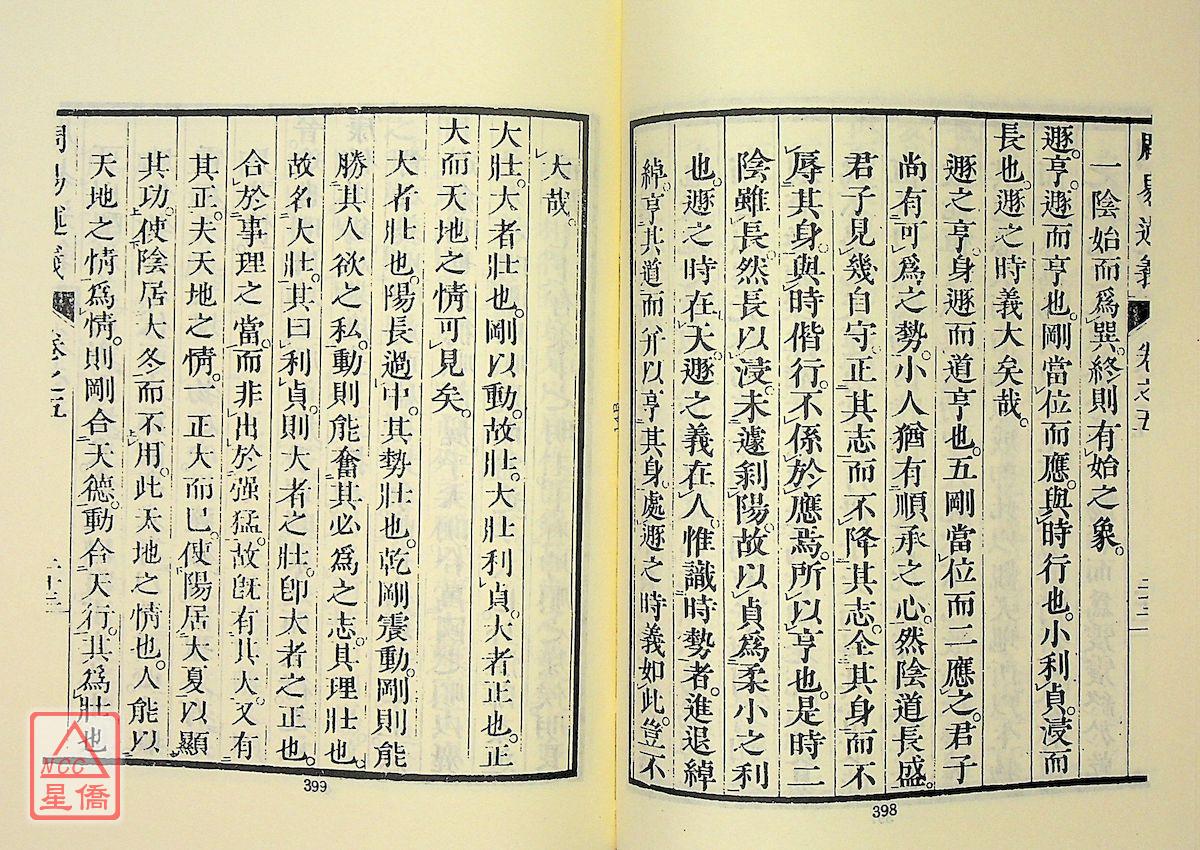 周易述義 卷之五 二十二
一陰始而爲巽。終則有始之象。
遯。亨。遯而亨也。剛當位而應。與時行也。小利貞。浸而
長也。遯之時義大矣哉。
遯之亨。身遯而道亨也。五剛當位而二應之。君子
尚有可爲之勢。小人猶有順承之心。然陰道長盛。
君子見幾自守。正其志而不降其志。全其身而不
辱其身。與時偕行。不係於應焉。所以亨也。是時二
陰雖長。然長以浸。未遽剝陽。故以貞爲柔小之利
也。遯之時在天。遯之義在人。惟識時勢者。進退綽
綽。亨其道而并以亨其身。處遯之時義如此。豈不
398
大哉。
大壯。大者壯也。剛以動。故壯。大壯利貞。大者正也。正
大而天地之情可見矣。
大者壯也。陽長過中。其勢壯也。乾剛震動。剛則能
勝其人欲之私。動則能奮其必爲之志。其理壯也。
故名大壯。其曰利貞。則大者之壯。卽大者之正也。
合於事理之當。而非出於强猛。故旣有其大。又有
其正。夫天地之情。一正大而已。使陽居大夏以顯
其功。使陰居大冬而不用。此天地之情也。人能以
天地之情爲情。則剛合天德。動合天行。其爲壯也
周易述義 卷之五 二十三
399
NCC
星僑